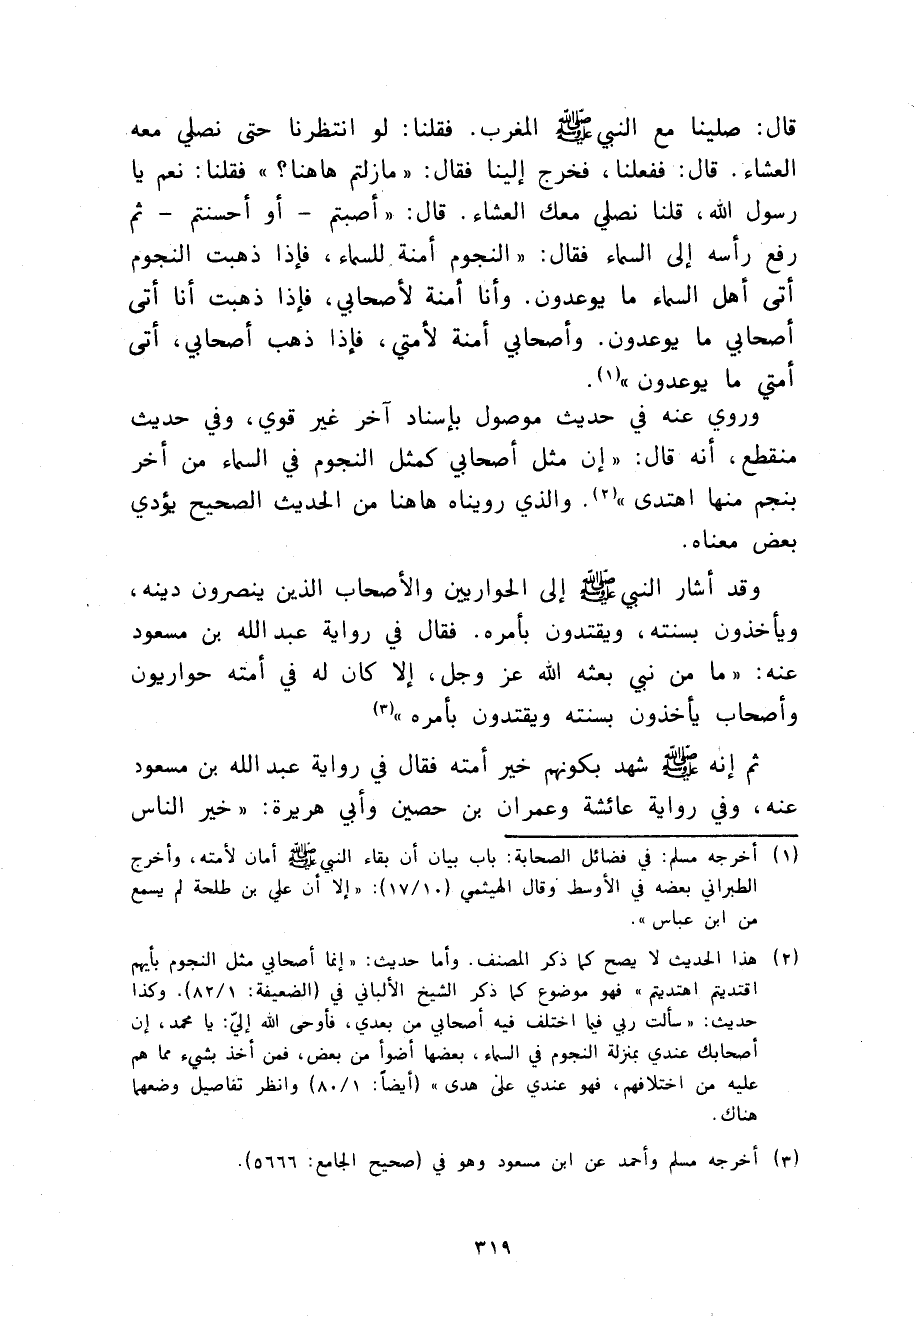 قال: صلينا مع النبي ﷺ المغرب. فقلنا: لو انتظرنا حتى نصلي معه
العشاء. قال: ففعلنا، فخرج إلينا فقال: «مازلتم هاهنا؟» فقلنا: نعم يا
رسول الله، قلنا نصلي معك العشاء. قال: «أصبتم - أو أحسنتم - ثم
رفع رأسه إلى السماء فقال: «النجوم أمنة للسماء، فإذا ذهبت النجوم
أتى أهل السماء ما يوعدون. وأنا أمنة لأصحابي، فإذا ذهبت أنا أتى
أصحابي ما يوعدون. وأصحابي أمنة لأمتي، فإذا ذهب أصحابي، أتى
أمتي ما يوعدون»(١).
وروي عنه في حديث موصول بإسناد آخر غير قوي، وفي حديث
منقطع، أنه قال: «إن مثل أصحابي كمثل النجوم في السماء من أخر
بنجم منها اهتدى»(٢). والذي رويناه هاهنا من الحديث الصحيح يؤدي
بعض معناه.
وقد أشار النبي ﷺ إلى الحواريين والأصحاب الذين ينصرون دينه،
ويأخذون بسنته، ويقتدون بأمره. فقال في رواية عبد الله بن مسعود
عنه: «ما من نبي بعثه الله عز وجل، إلا كان له في أمته حواريون
وأصحاب يأخذون بسنته ويقتدون بأمره»(٣)
ثم إنه ﷺ شهد بكونهم خير أمته فقال في رواية عبد الله بن مسعود
عنه، وفي رواية عائشة وعمران بن حصين وأبي هريرة: «خير الناس
(١) أخرجه مسلم: في فضائل الصحابة: باب بيان أن بقاء النبي ﷺ أمان لأمته، وأخرج
الطبراني بعضه في الأوسط وقال الهيثمي (١٧/١٠): «إلا أن علي بن طلحة لم يسمع
من ابن عباس».
(٢) هذا الحديث لا يصح كما ذكر المصنف. وأما حديث: «إنما أصحابي مثل النجوم بأيهم
اقتديتم اهتديتم» فهو موضوع كما ذكر الشيخ الألباني في (الضعيفة: ٨٢/١). وكذا
حديث: «سألت ربي فيما اختلف فيه أصحابي من بعدي، فأوحى الله إليّ: يا محمد، إن
أصحابك عندي بمنزلة النجوم في السماء، بعضها أضوأ من بعض، فمن أخذ بشيء مما هم
عليه من اختلافهم، فهو عندي على هدى» (أيضاً: ٨٠/١) وانظر تفاصيل وضعهما
هناك.
(٣) أخرجه مسلم وأحمد عن ابن مسعود وهو في (صحيح الجامع: ٥٦٦٦).
٣١٩